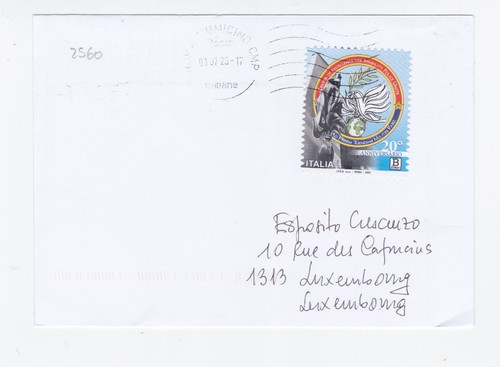 2560
FIUMICINO CMP
03 07 25 - 17
20°
ANNIVERSARIO
ITALIA
B
Esposito Crescenzo
10 Rue des Capucins
1313 Luxembourg
Luxembourg